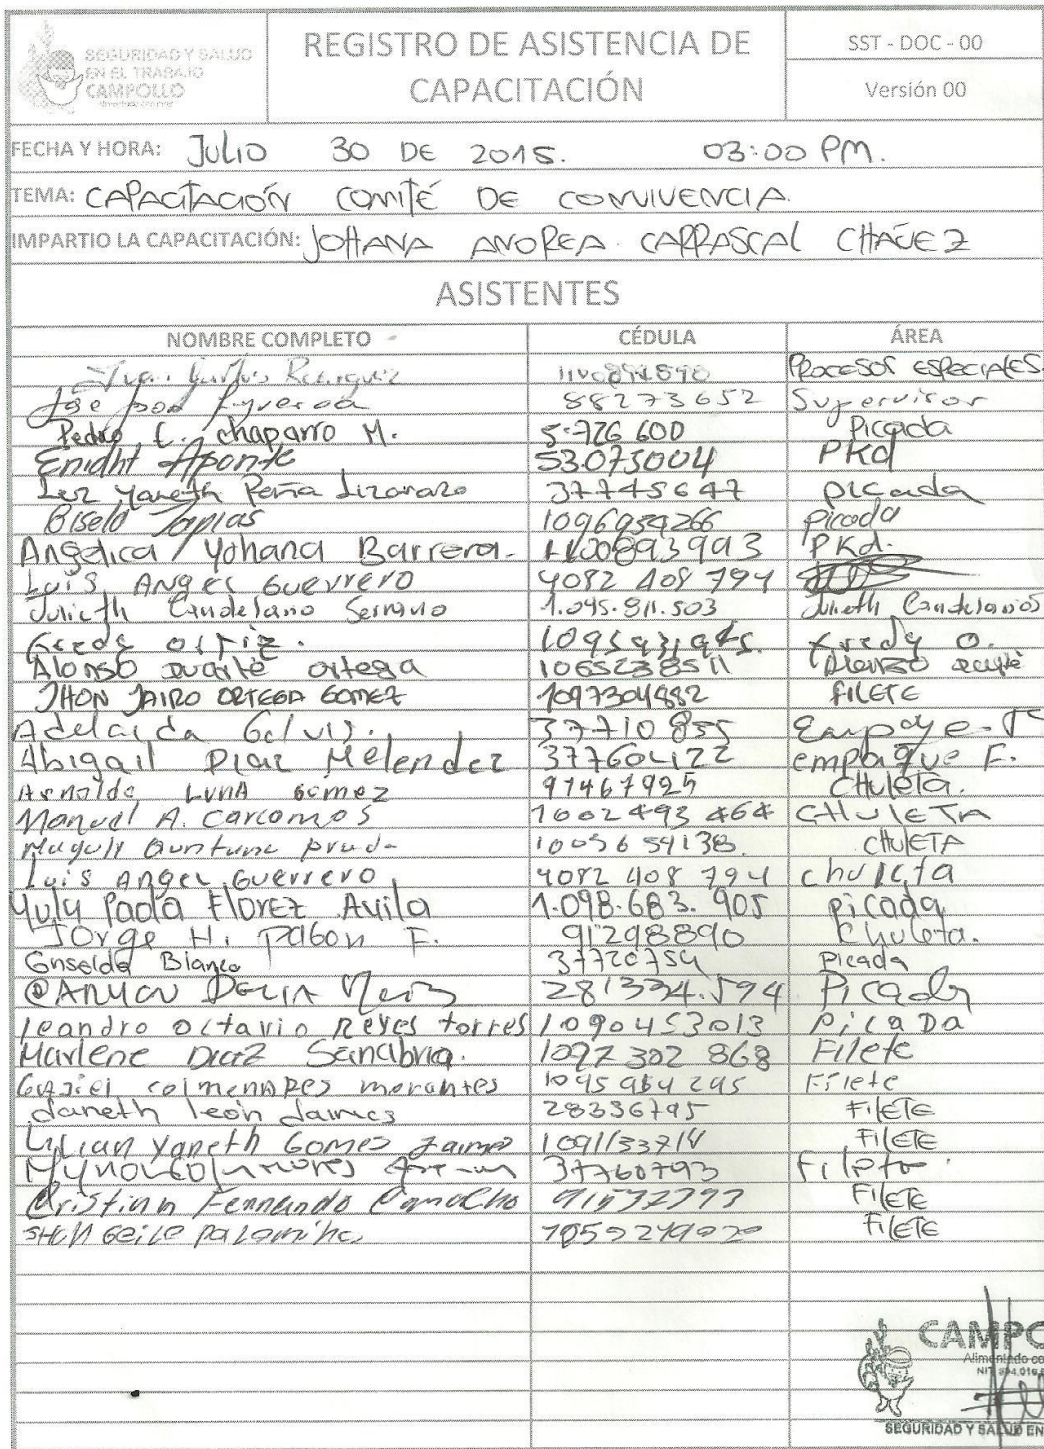 SEGURIDAD Y SALUD
EN EL TRABAJO
CAMPOLLO
REGISTRO DE ASISTENCIA DE
CAPACITACIÓN
SST - DOC - 00
Versión 00
FECHA Y HORA: JULIO 30 DE 2015. 03:00 PM.
TEMA: CAPACITACIÓN COMITÉ DE CONVIVENCIA.
IMPARTIO LA CAPACITACIÓN: JOHANA ANDREA CARRASCAL CHAVEZ
ASISTENTES
NOMBRE COMPLETO CÉDULA ÁREA
Juan Carlos PROCESOS ESPECIALES.
Jose Figueroa 88273652 Supervisor
Pedro C. chaparro M. 5.726 600 Picada
Enidht Aponte 53.075004 PKd
Luz Yaneth Peña Lizarazo 37745647 picada
Tapias 1096954266 Picada
Angelica Yohana Barrera. 1100893993 PKd.
Luis ANGEL Guerrero 4082 408 794
Julieth Candelario Serrano 1.095.811.503 Julieth
Fredy ortiz. Fredy O.
Alonso duarte ortega 1065238511 Alonso duarte
JHON JAIRO ORTEGA GOMEZ 1097304882 FILETE
Adelaida Gelvis. 37710855
Abigail Diaz Melendez 37760422 empaque F.
Arnoldo LUNA Gómez 91467925 CHULETA.
Manuel A. Carcamos 1002493464 CHULETA
Maguly Quintana prada 1005659138 CHULETA
Luis Angel Guerrero 4082 408 794 chuleta
Yuly Paola Florez Avila 1.098.683.905 picada
Jorge H. Pabon F. 91298890 Chuleta.
Griselda Blanco 37720754 Picada
DELIA 281334.594 Picada
Leandro octavio Reyes torres 1090453013 PicaDa
Marlene Diaz Sanabria. 1097302 868 Filete
colmenares morantes 1095954295 Filete
Janeth león 28336795 FILETE
Lilian Yaneth Gomez Jaime 1091133714 FILETE
37760793 Filete
Cristian Fernando Camacho FILETE
palomino FILETE
CAMPO
Alimentado co
NIT
SEGURIDAD Y SALUD EN